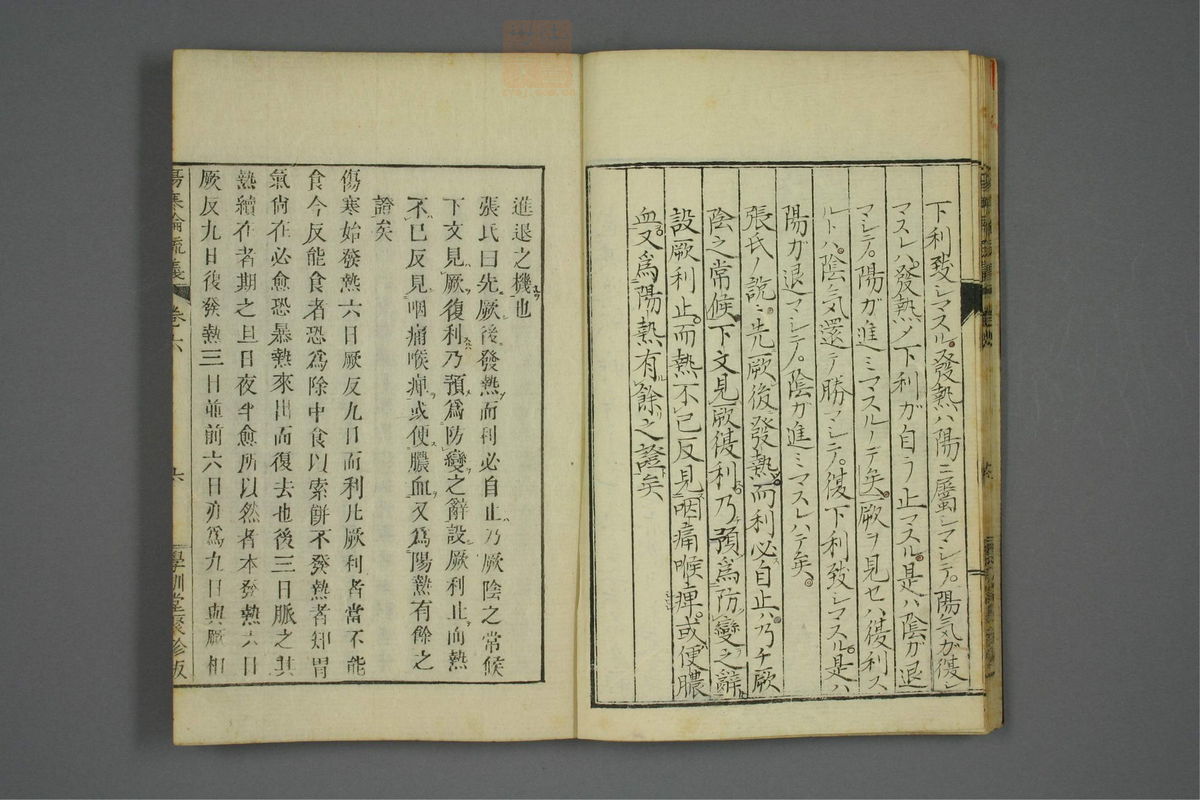 下利致シマスル。發熱ハ陽ニ屬シマシテ。陽気ガ復シ
マスレハ發熱シ下利ガ自ラ止マスル。是ハ陰ガ退
マシテ。陽ガ進ミマスルノテ矣。厥ヲ見セハ復利ス
ルトハ。陰気還テ勝ノシテ。復下利致シマスル。是ハ
陽ガ退マシテ。陰ガ進ミマスレハテ矣。
張氏ノ説ニ先厥後發熱。而利必自止ハ乃チ厥
陰之常候下文見厥復利乃預爲防變之辭
設厥利止。而熱不已反見咽痛喉痺。或便膿
血又爲陽熱有餘之證矣
進退之機也
張氏曰先厥後發熱而利必自止乃厥陰之常候
下文見厥復利乃預爲防變之辭設厥利止而熱
不已反見咽痛喉痺或便膿血又爲陽熱有餘之
證矣
傷寒始發熱六日厥反九日而利凡厥利者當不能
食今反能食者恐爲除中食以索餅不發熱者知胃
氣尚在必愈恐暴熱來出而復去也後三日脈之其
熱續在者期之旦日夜半愈所以然者本發熱六日
厥反九日復發熱三日並前六日亦爲九日與厥相
傷寒論疏義 卷六 六 學訓堂聚珍版